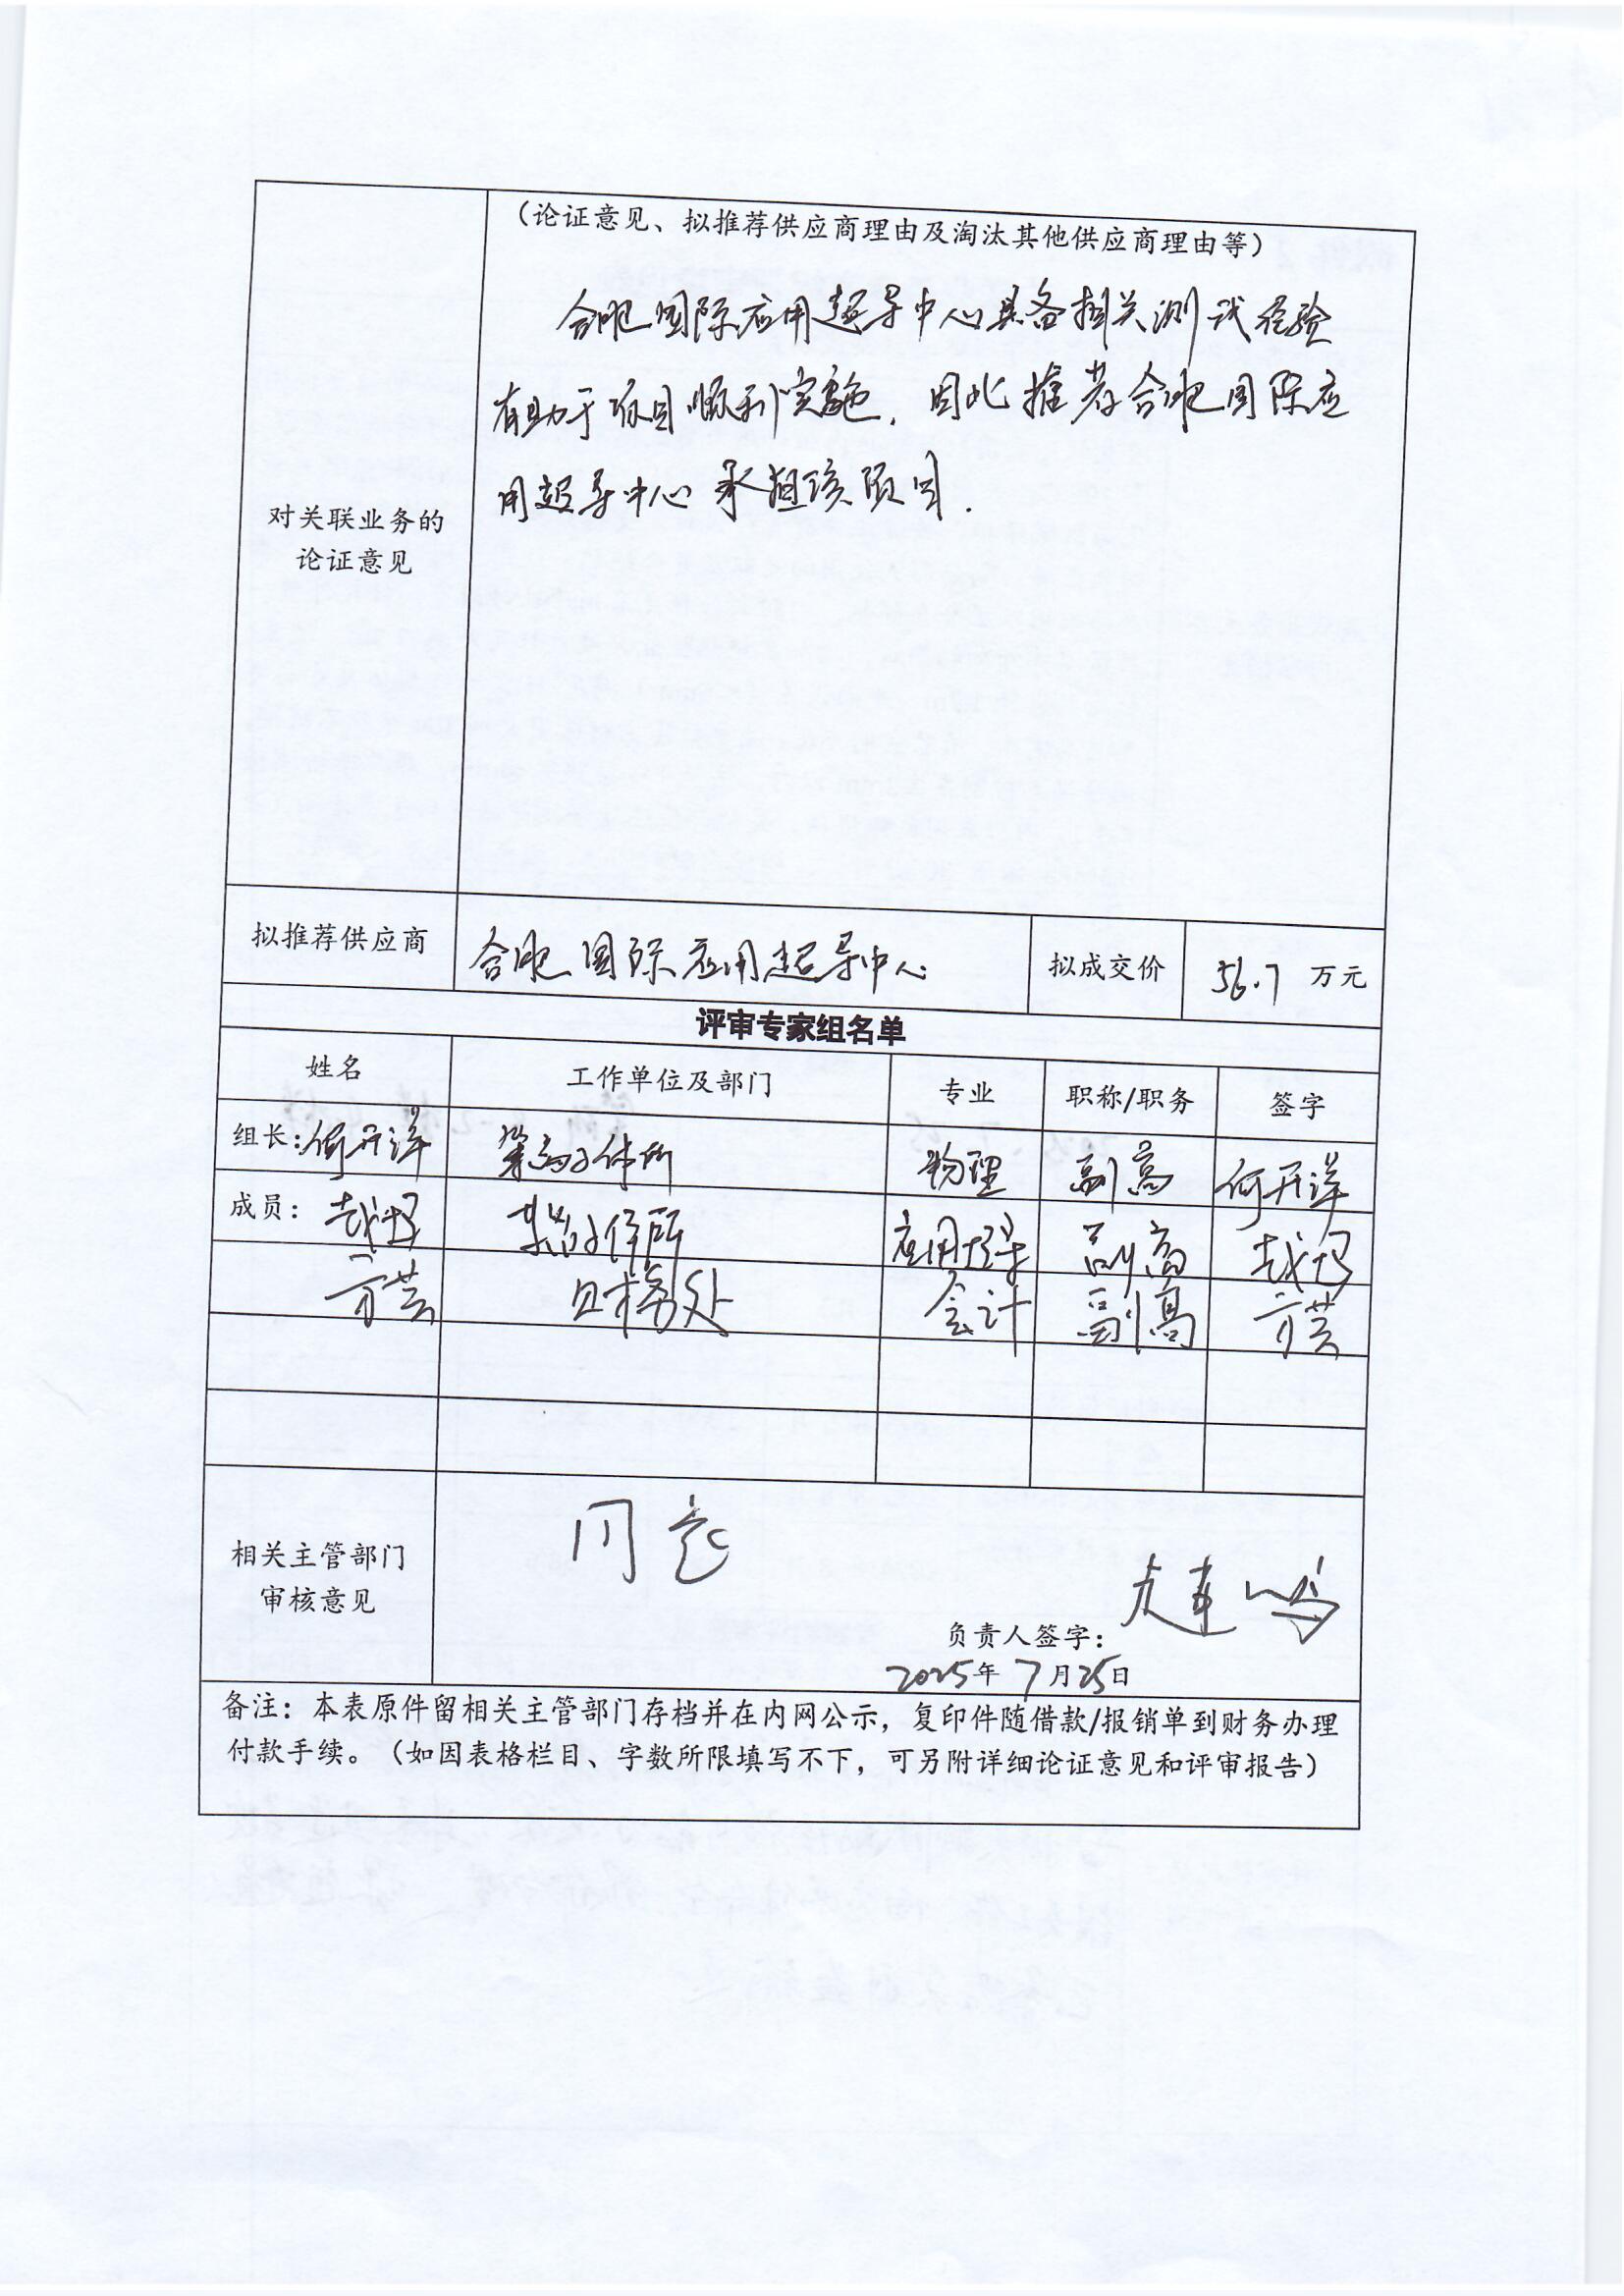 （论证意见、拟推荐供应商理由及淘汰其他供应商理由等）
合肥国际应用超导中心具备相关测试经验
有助于项目顺利实施，因此推荐合肥国际应
用超导中心承担该项目．
对关联业务的
论证意见
拟推荐供应商 合肥国际应用超导中心 拟成交价 56.7 万元
评审专家组名单
姓名 工作单位及部门 专业 职称/职务 签字
组长：何开洋 等离子体所 物理 副高 何开洋
成员： 等离子体所 应用超导 副高
方芸 财务处 会计 副高 方芸
同意
相关主管部门
审核意见
负责人签字：
2025年 7月25日
备注：本表原件留相关主管部门存档并在内网公示，复印件随借款/报销单到财务办理
付款手续。（如因表格栏目、字数所限填写不下，可另附详细论证意见和评审报告）